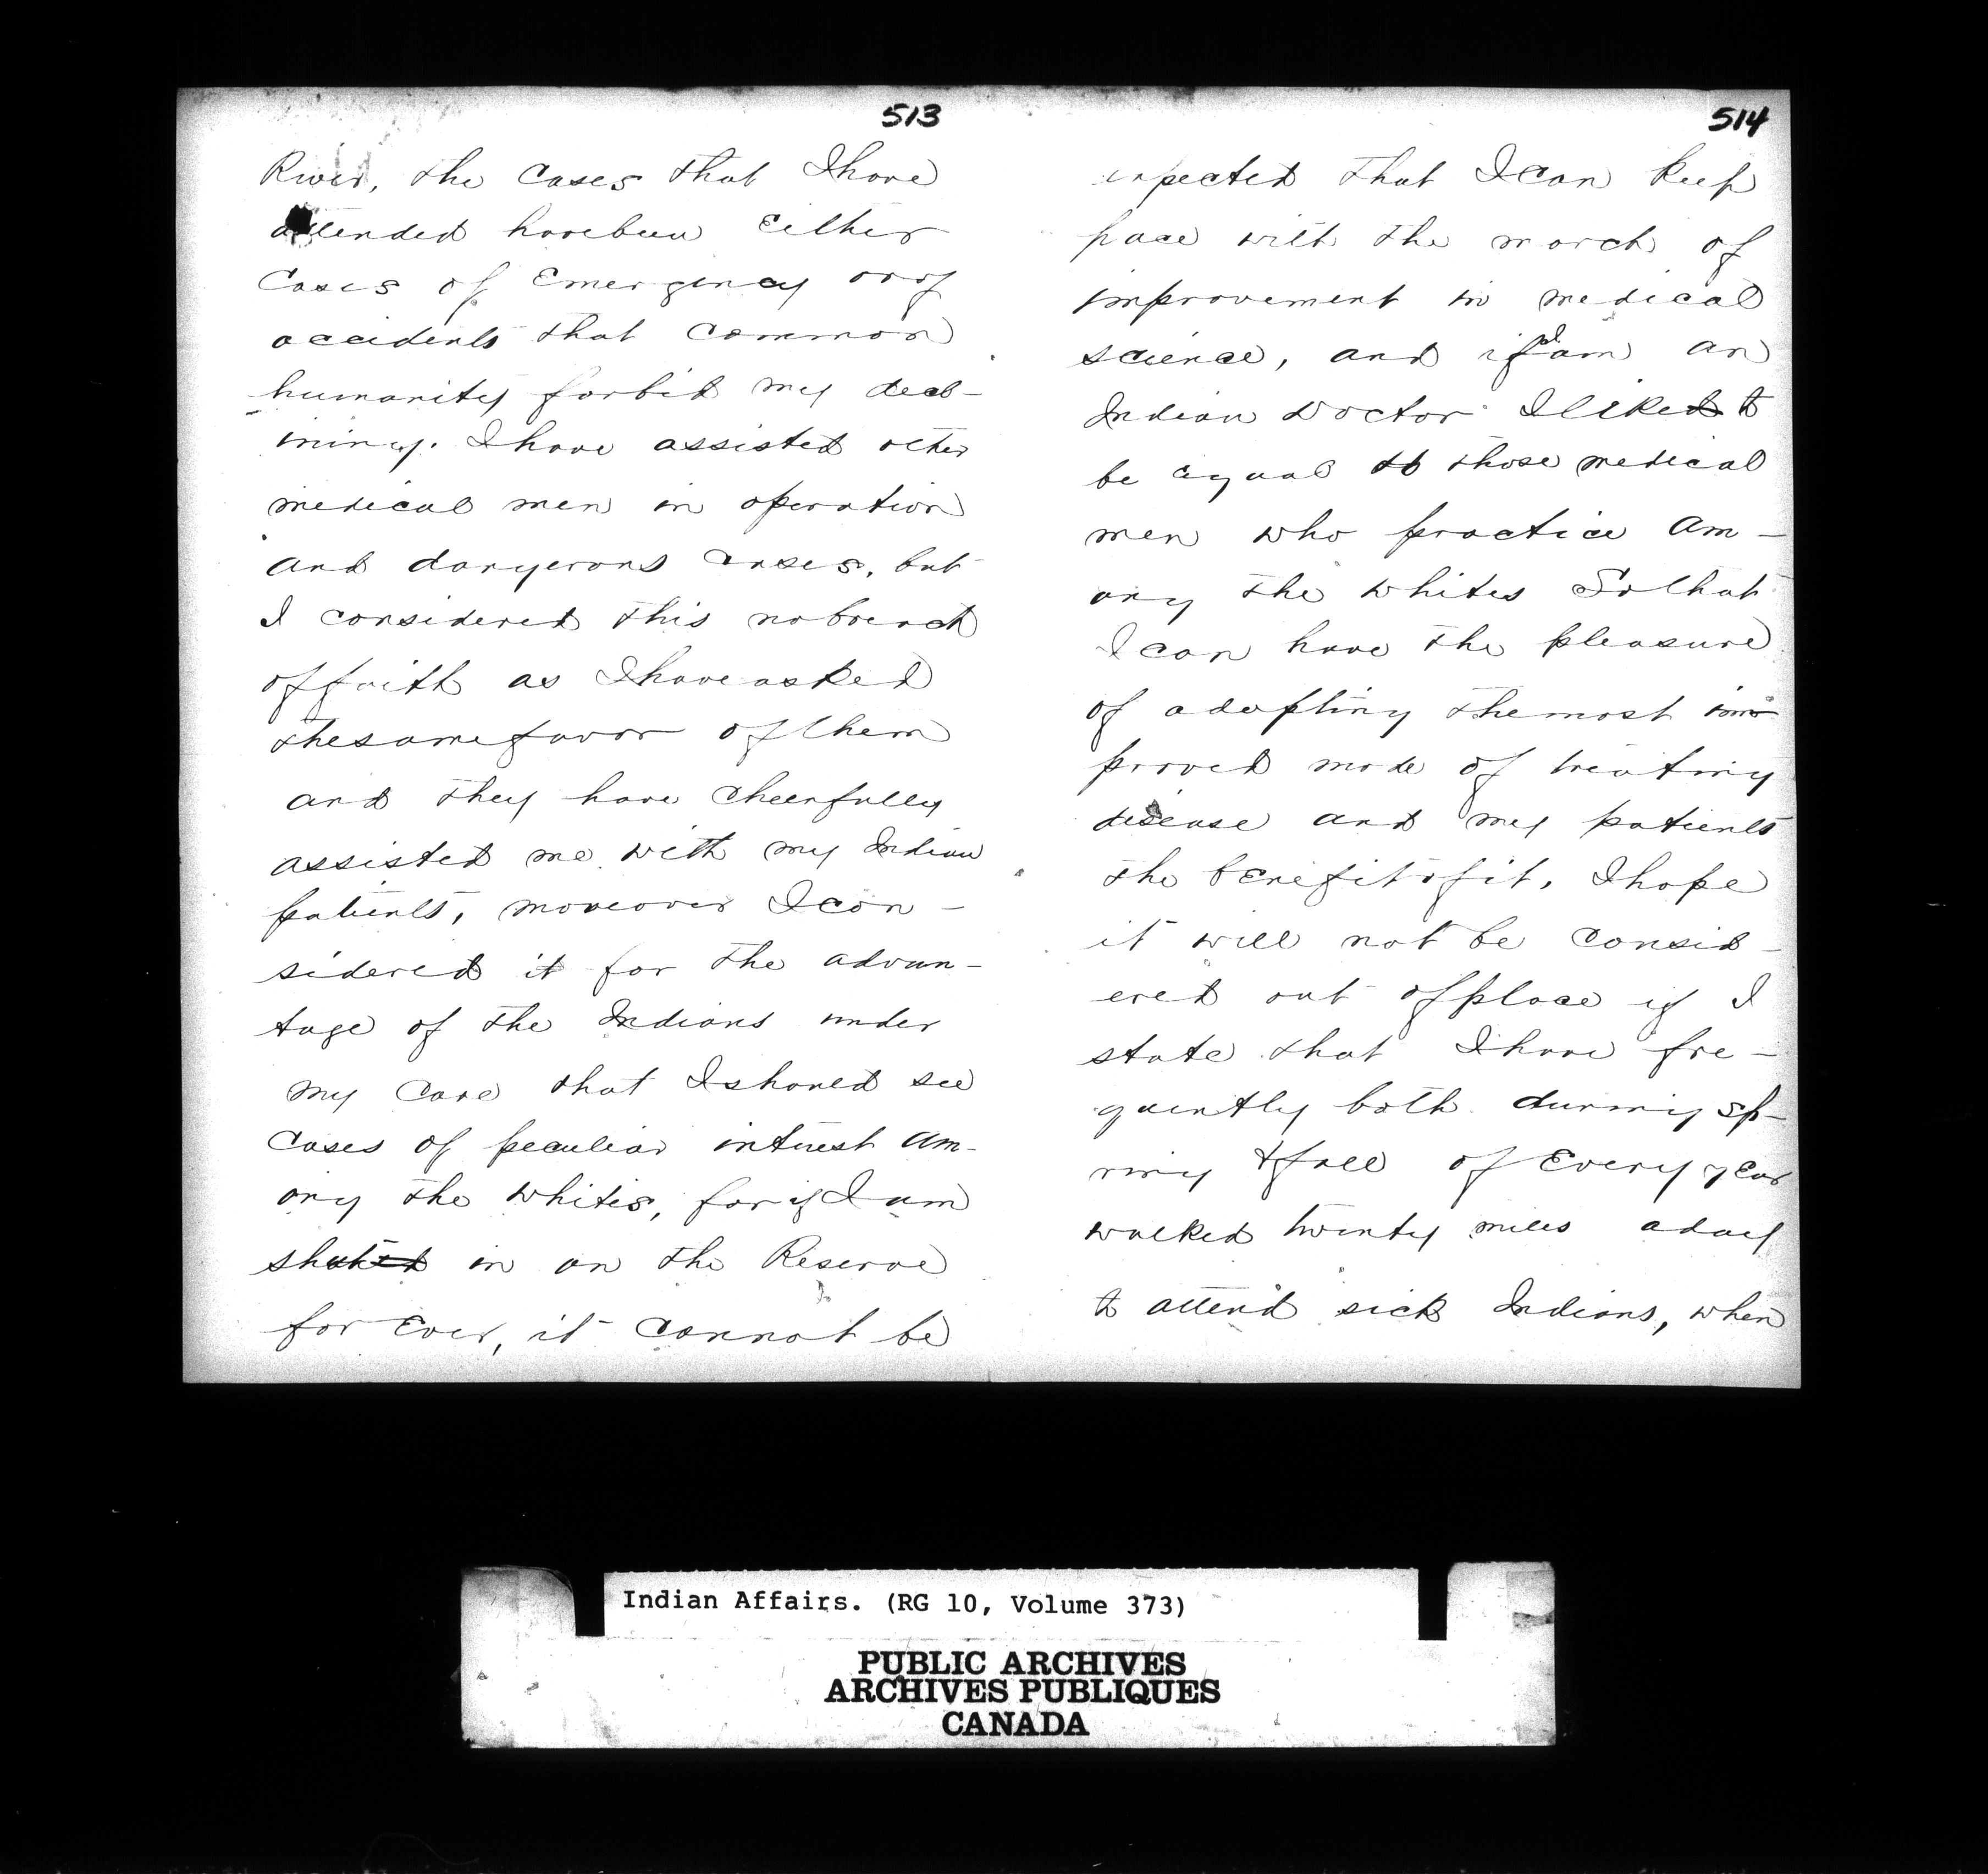 513
River, the Cases that I have
attended have been Either
Cases of Emergency or of
accidents that Common
humanity forbid my decl-
ining. I have assisted other
medical men in operation
and dangerous cases, but
I considered this no breach
of faith as I have asked
the same favor of them
and they have cheerfully
assisted me with my Indian
patients, moreover I con-
sidered it for the advan-
tage of the Indians under
my Care that I should see
Cases of peculiar interest am-
ong the whites, for if I am
shut in on the Reserve
for Ever, it cannot be
514
expected that I can keep
pace with the march of
improvement in medical
science, and if I am an
Indian Doctor I like to
be equal to those medical
men who practice am-
ong the whites So that
I can have the pleasure
of adopting the most im
proved mode of treating
disease and my patients
the benefit of it, I hope
it will not be consid-
ered out of place if I
state that I have fre-
quently both during sp-
ring & fall of Every year
walked twenty miles a day
to attend sick Indians, when
Indian Affairs. (RG 10, Volume 373)
PUBLIC ARCHIVES
ARCHIVES PUBLIQUES
CANADA